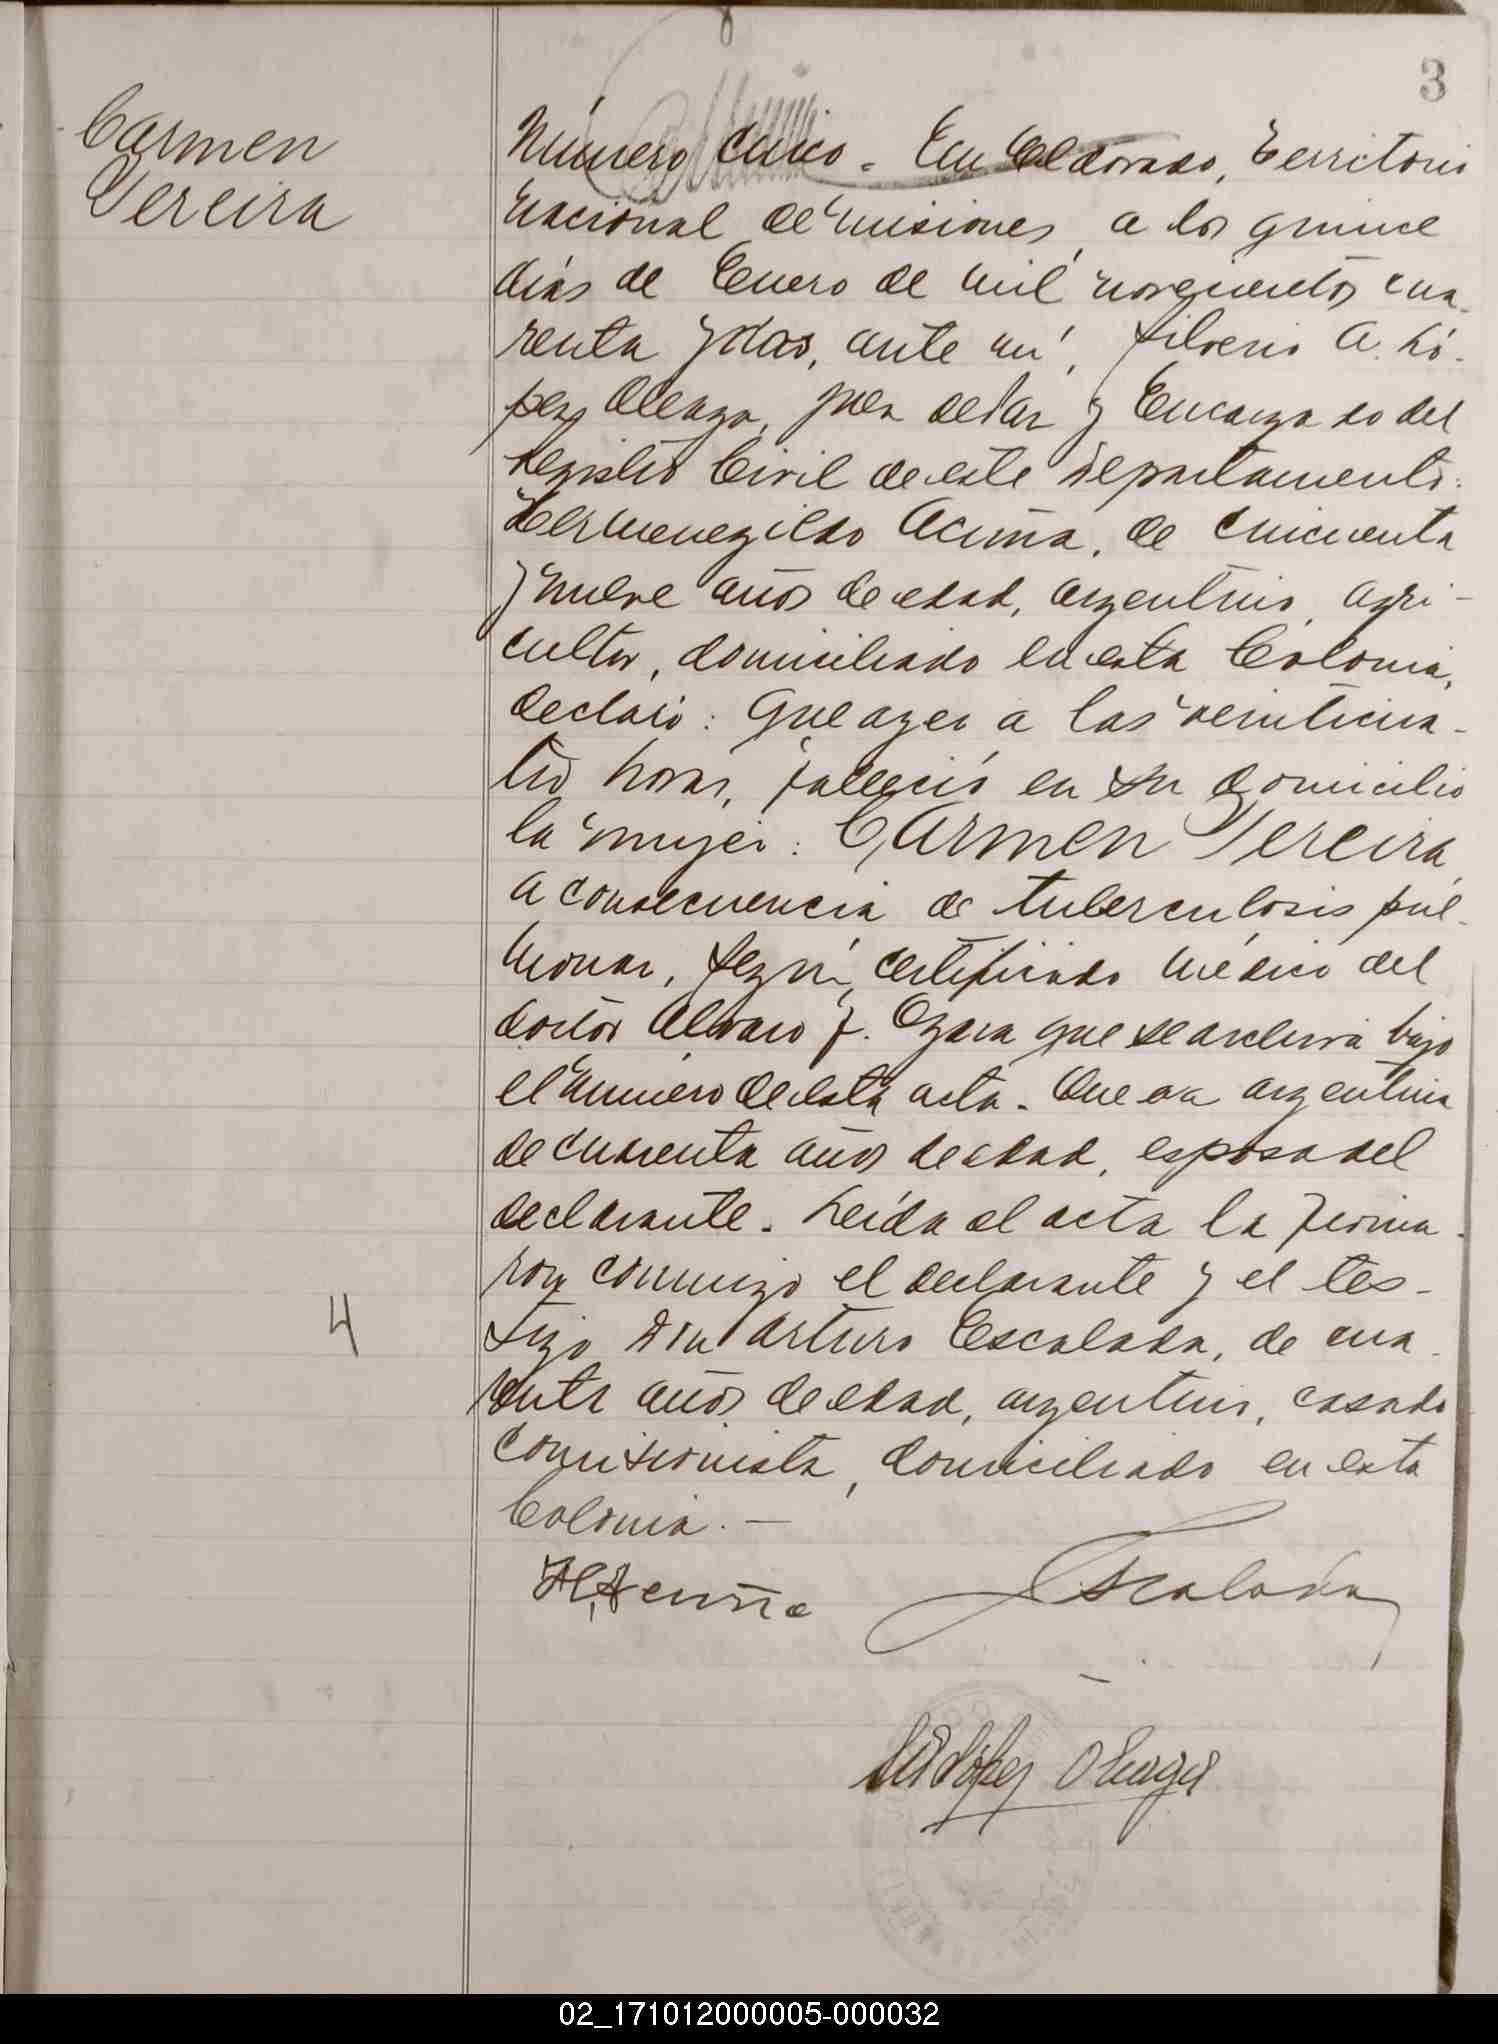 3
Carmen
Pereira
Número Cinco. En Eldorado, Territorio
Nacional de Misiones, a los quince
días de Enero de mil novecientos cua-
renta y dos, ante mí, Silverio A. Ló-
pez Oleaga, Juez de Paz y Encargado del
Registro Civil de este Departamento:
Hermenegildo Acuña, de cincuenta
y nueve años de edad, argentino, agri-
cultor, domiciliado en esta Colonia,
declaró: Que ayer a las veinticua-
tro horas, falleció en su domicilio
la mujer: Carmen Pereira,
a consecuencia de tuberculosis pul-
monar, según certificado médico del
doctor Alvaro J. que se archiva bajo
el número de esta acta. Que era argentina
de cuarenta años de edad, esposa del
declarante. Leída el acta la firma-
ron conmigo el declarante y el tes-
tigo Don Arturo Escalada, de cua-
renta años de edad, argentino, casado
comisionista, domiciliado en esta
Colonia.—
4
H. Acuña
Escalada
López Oleaga
02_171012000005-000032